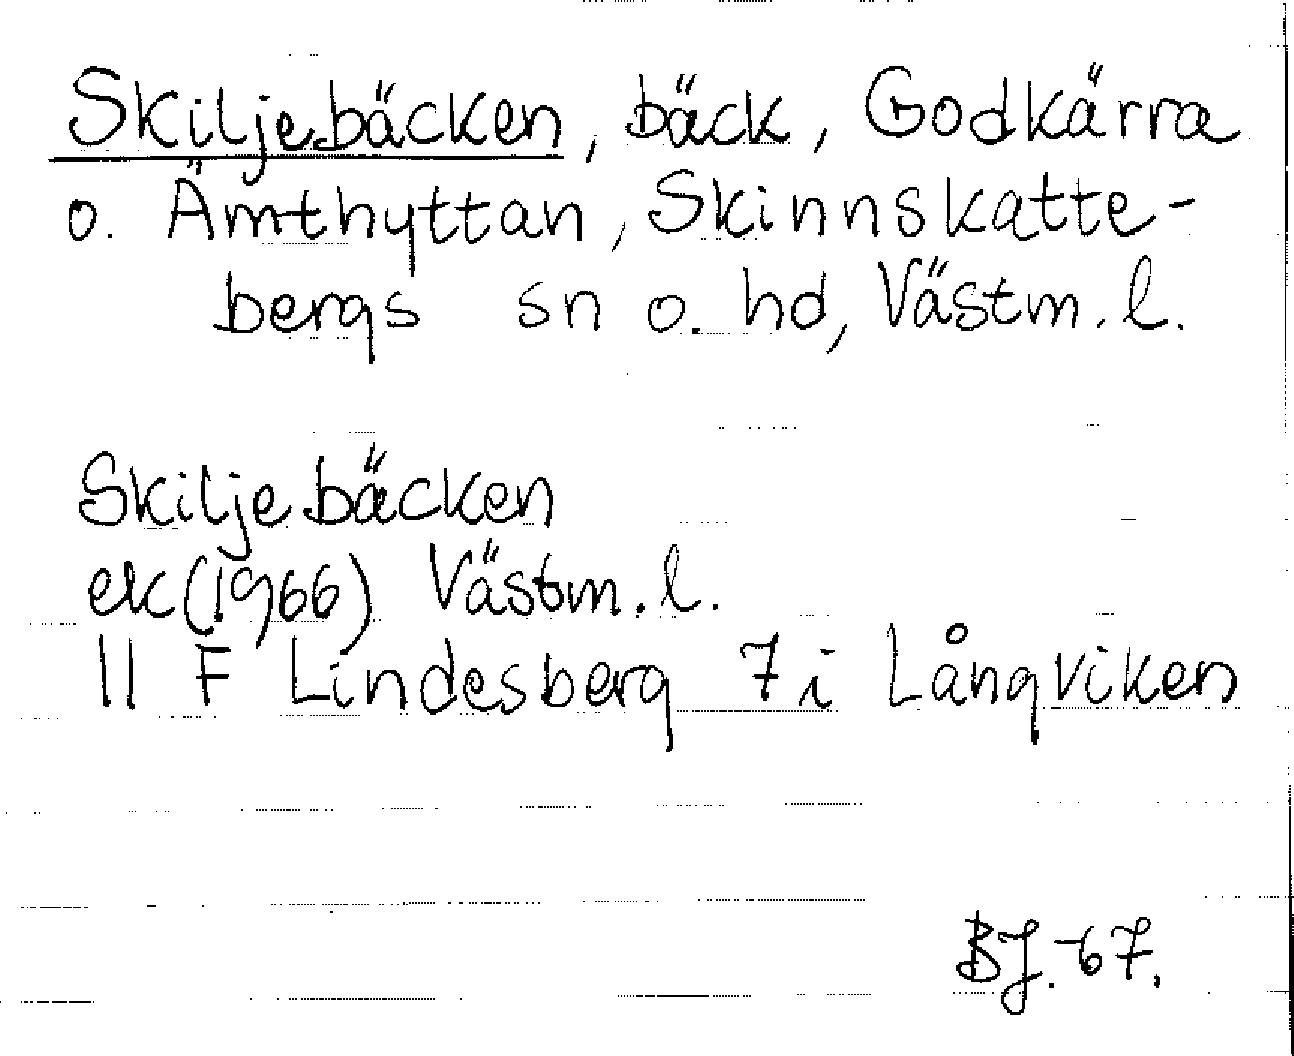 Skiljebäcken, bäck, Godkärra
o. Ämthyttan, Skinnskatte-
bergs sn o. hd, Västm. l.
Skiljebäcken
ek (1966) Västm. l.
11 F Lindesberg 7i Långviken
BJ. -67.